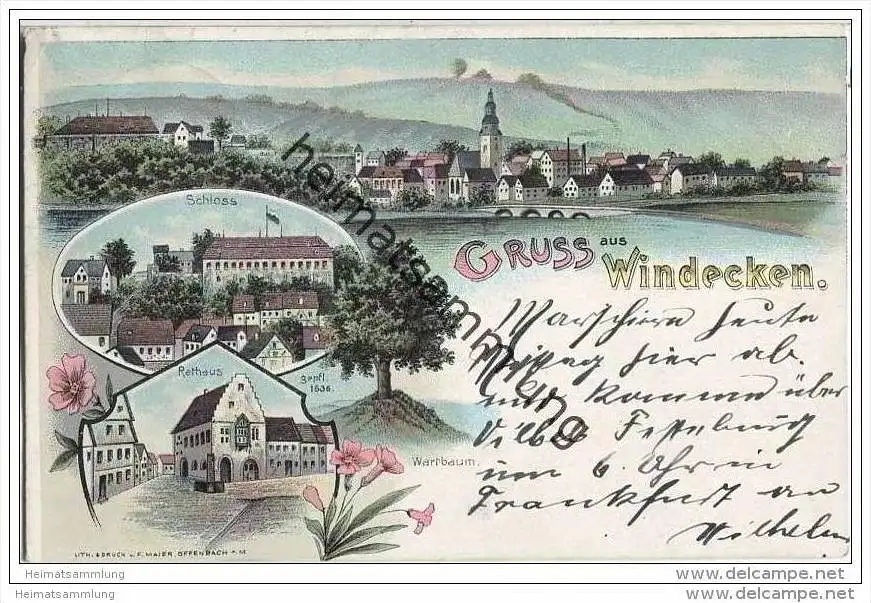 Schloss
GRUSS aus
Windecken.
Rathaus
gepfl.
1636.
Wartbaum.
Marschiern heute
Mittag hier ab.
und komme über
Vilbel
um 6. Uhr in
Frankfurt an
Wilhelm
LITH. & DRUCK v. F. MAIER OFFENBACH A. M.
heimatsammlung
Heimatsammlung
Heimatsammlung
www.delcampe.net
www.delcampe.net